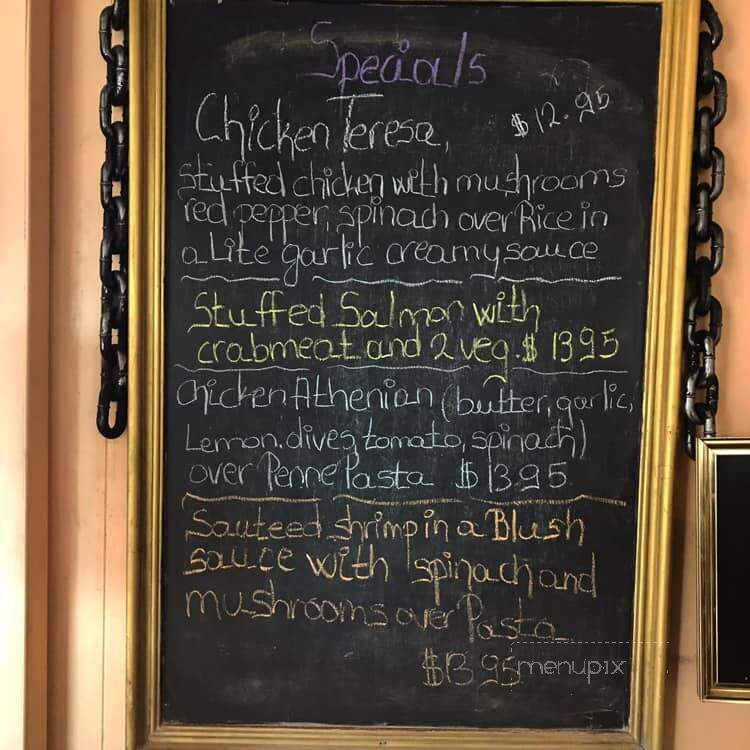 Specials
Chicken Teresa, $12.95
Stuffed chicken with mushrooms
red pepper, spinach over Rice in
a Lite garlic creamy sauce
Stuffed Salmon with
crabmeat and 2 veg. $ 13.95
Chicken Athenian (butter, garlic,
Lemon, olives, tomato, spinach)
over Penne Pasta $13.95
Sauteed shrimp in a Blush
sauce with spinach and
mushrooms over Pasta
$13.95
menupix